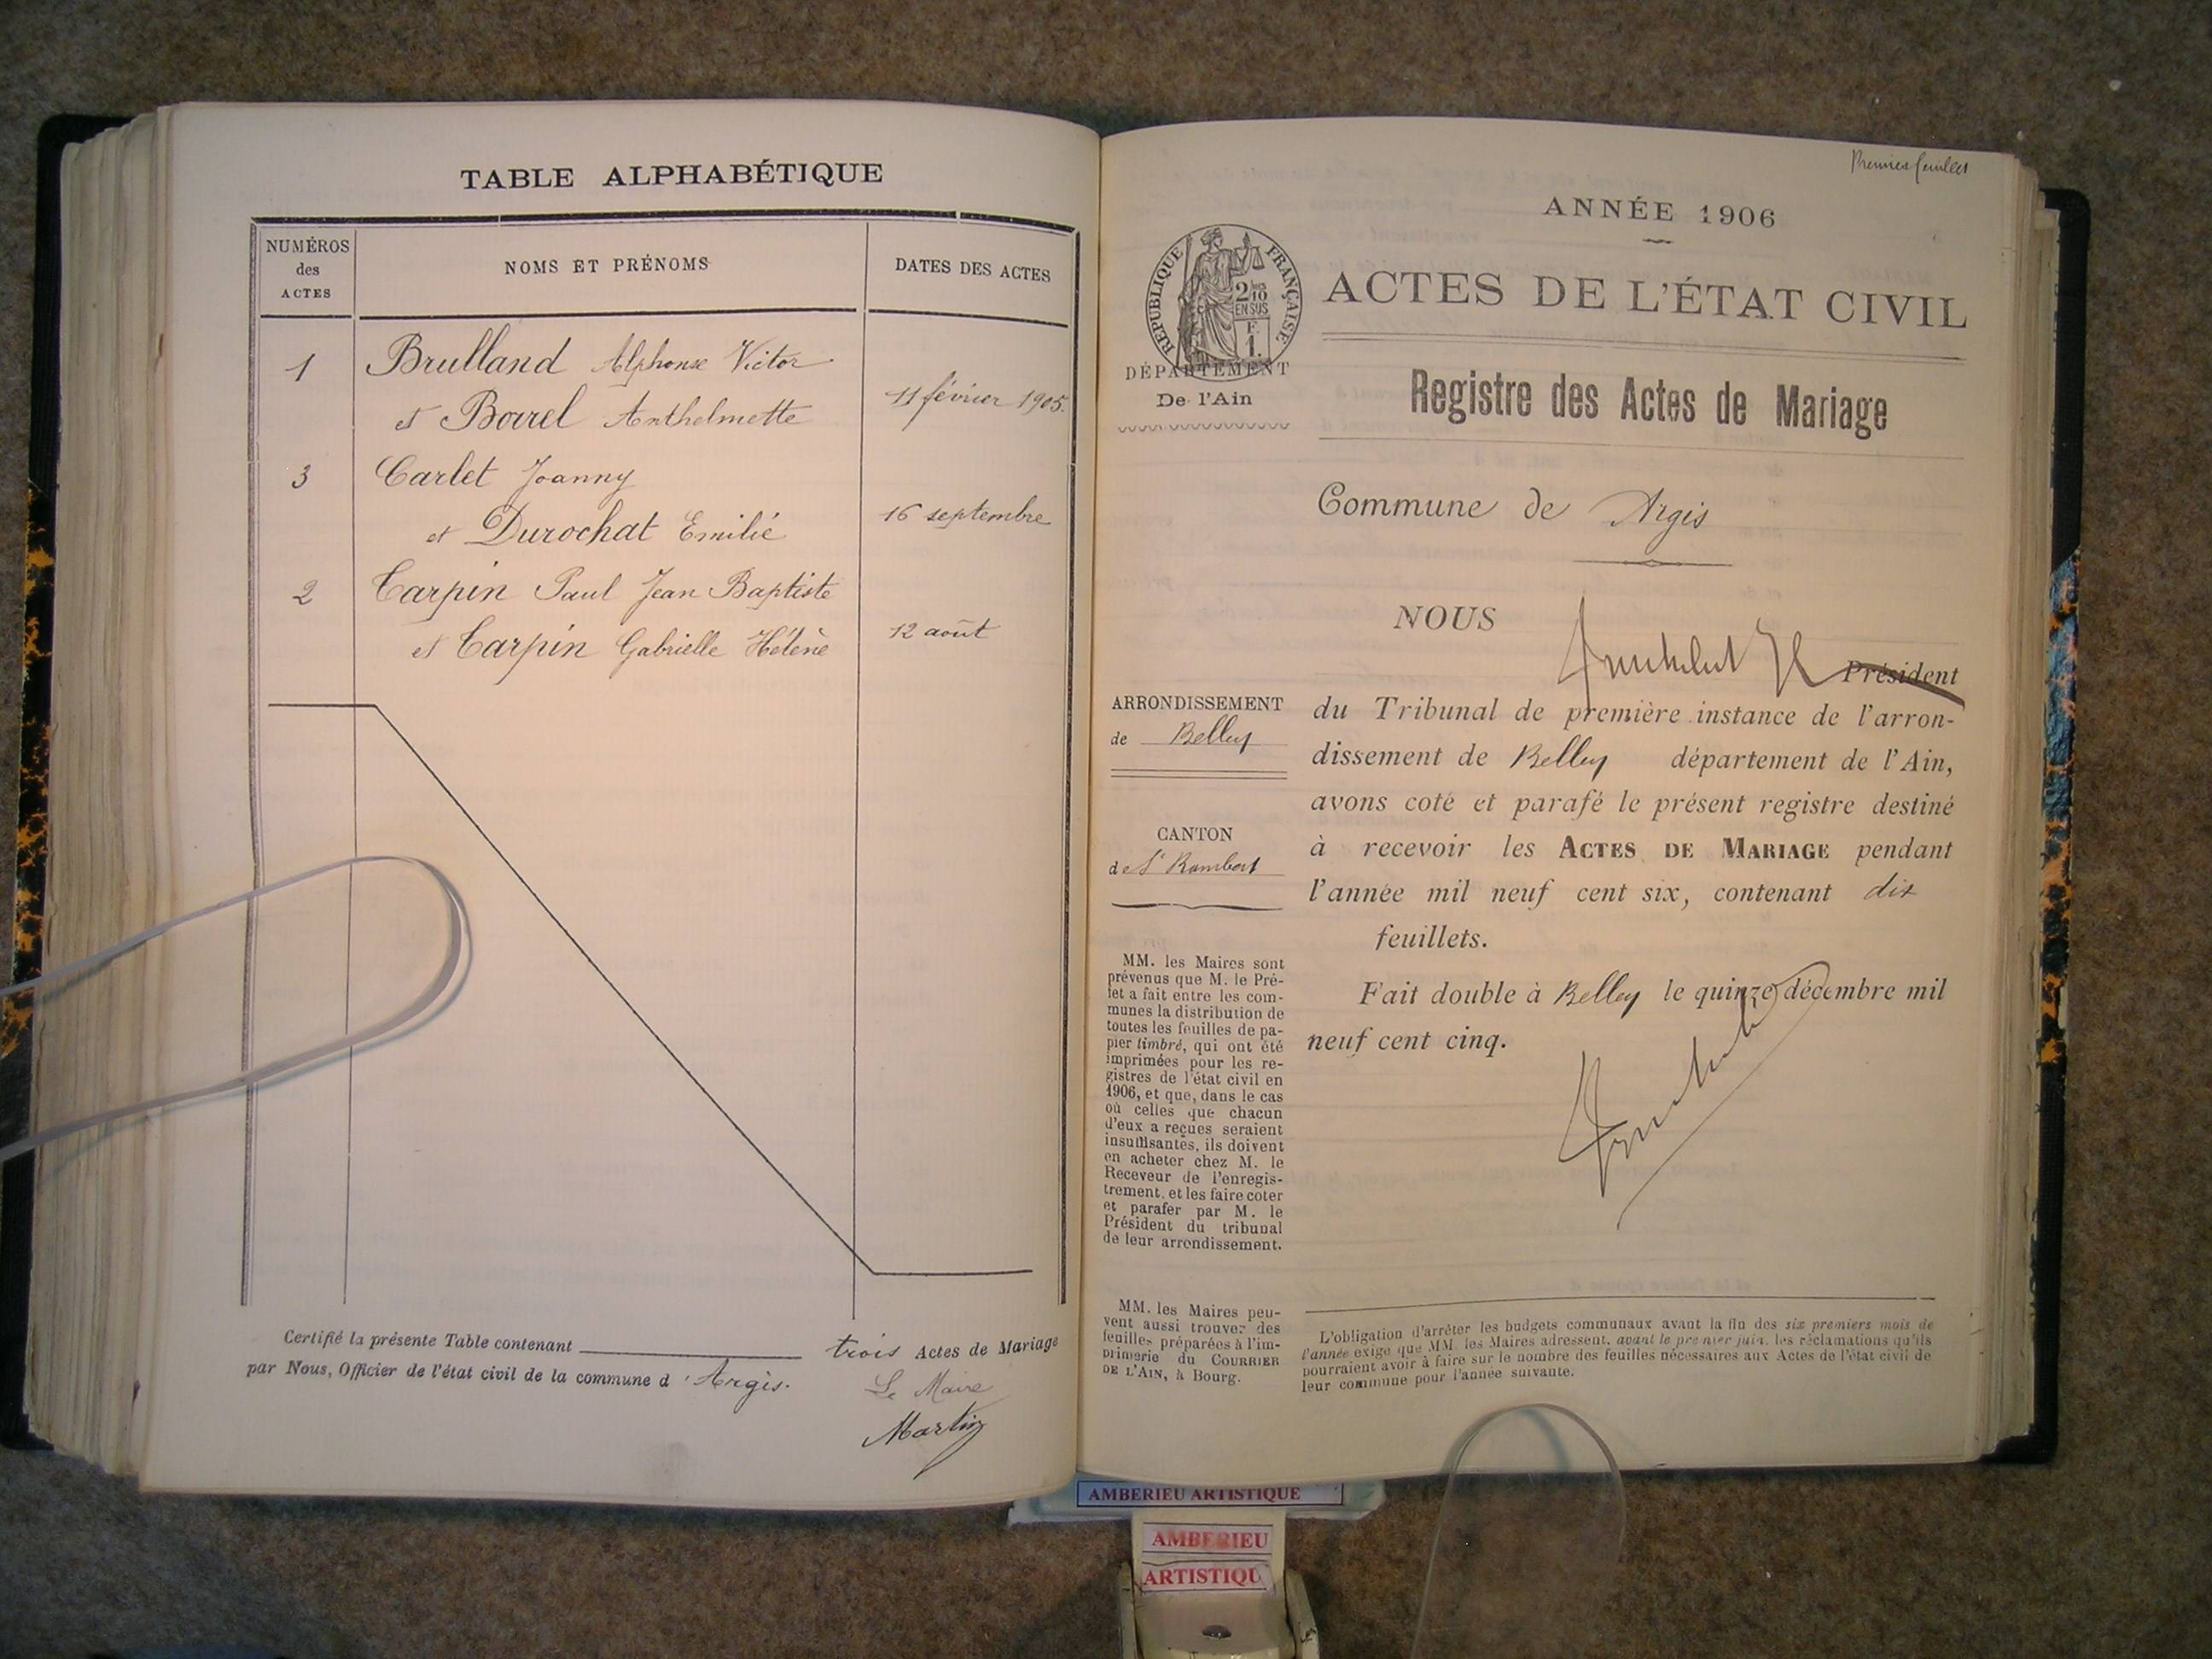 TABLE ALPHABÉTIQUE
NUMÉROS
des
ACTES
NOMS ET PRÉNOMS
DATES DES ACTES
1
Brulland Alphonse Victor
et Borrel Anthelmette
11 février 1905.
3
Carlet Joanny
et Durochat Emilie
16 septembre
2
Carpin Paul Jean Baptiste
et Carpin Gabrielle Hélène
12 août
Certifié la présente Table contenant trois Actes de Mariage
par Nous, Officier de l'état civil de la commune d'Argis.
Le Maire
Martin
Premier feuillet
ANNÉE 1906
RÉPUBLIQUE FRANÇAISE
2/10
EN SUS
F.
1.
ACTES DE L'ÉTAT CIVIL
DÉPARTEMENT
De l'Ain
Registre des Actes de Mariage
Commune de Argis
NOUS
Président
ARRONDISSEMENT
de Belley
du Tribunal de première instance de l'arron-
dissement de Belley département de l'Ain,
avons coté et parafé le présent registre destiné
à recevoir les ACTES DE MARIAGE pendant
l'année mil neuf cent six, contenant dix
feuillets.
Fait double à Belley le quinze décembre mil
neuf cent cinq.
CANTON
de St Rambert
MM. les Maires sont
prévenus que M. le Pré-
fet a fait entre les com-
munes la distribution de
toutes les feuilles de pa-
pier timbré, qui ont été
imprimées pour les re-
gistres de l'état civil en
1906, et que, dans le cas
où celles que chacun
d'eux a reçues seraient
insuffisantes, ils doivent
en acheter chez M. le
Receveur de l'enregis-
trement, et les faire coter
et parafer par M. le
Président du tribunal
de leur arrondissement.
MM. les Maires peu-
vent aussi trouver des
feuilles préparées à l'im-
primerie du COURRIER
DE L'AIN, à Bourg.
L'obligation d'arrêter les budgets communaux avant la fin des six premiers mois de
l'année exige que MM. les Maires adressent, avant le premier juin, les réclamations qu'ils
pourraient avoir à faire sur le nombre des feuilles nécessaires aux Actes de l'état civil de
leur commune pour l'année suivante.
AMBERIEU ARTISTIQUE
AMBERIEU
ARTISTIQU